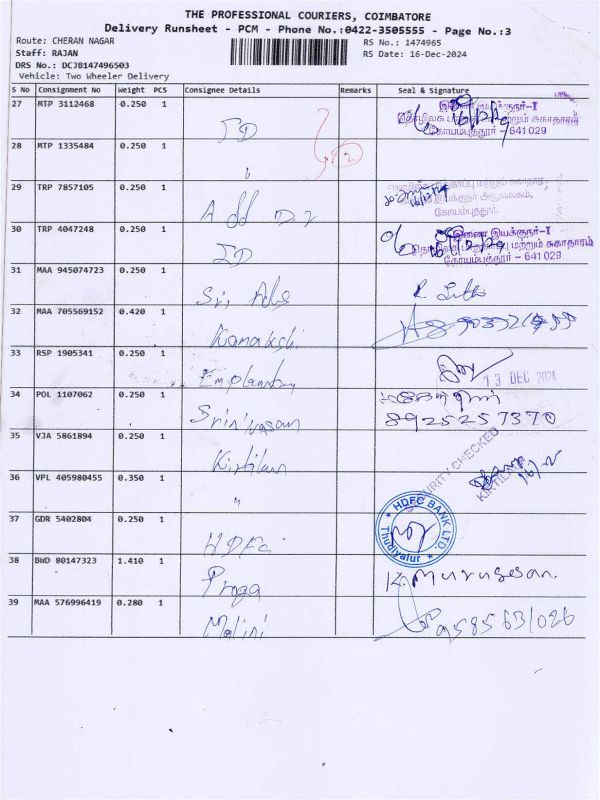 THE PROFESSIONAL COURIERS, COIMBATORE
Delivery Runsheet - PCM - Phone No.:0422-3505555 - Page No.:3
Route: CHERAN NAGAR
RS No.: 1474965
Staff: RAJAN
RS Date: 16-Dec-2024
DRS No.: DCJB147496503
Vehicle: Two Wheeler Delivery
S No Consignment No Weight PCS Consignee Details Remarks Seal & Signature
27 MTP 3112468 0.250 1 JD
இணை இயக்குநர்-I
கோயம்புத்தூர் - 641 029
28 MTP 1335484 0.250 1 "
2
29 TRP 7857105 0.250 1 Add D2
கோயம்புத்தூர்.
30 TRP 4047248 0.250 1 JD
இணை இயக்குநர்-I
மற்றும் சுகாதாரம்
கோயம்புத்தூர் - 641 029
31 MAA 945074723 0.250 1 Sri Ads
32 MAA 705569152 0.420 1 Kamakshi
33 RSP 1905341 0.250 1
13 DEC 2024
34 POL 1107062 0.250 1 Srinivasan
8925257370
35 VJA 5861894 0.250 1 Kirtilan
SECURITY CHECKED
36 VPL 405980455 0.350 1 "
37 GDR 5402804 0.250 1 HDFC
HDFC BANK LTD.
Thudiyalur
38 BWD 80147323 1.410 1 Praga K. Murugesan.
39 MAA 576996419 0.280 1 Malini 9585631026